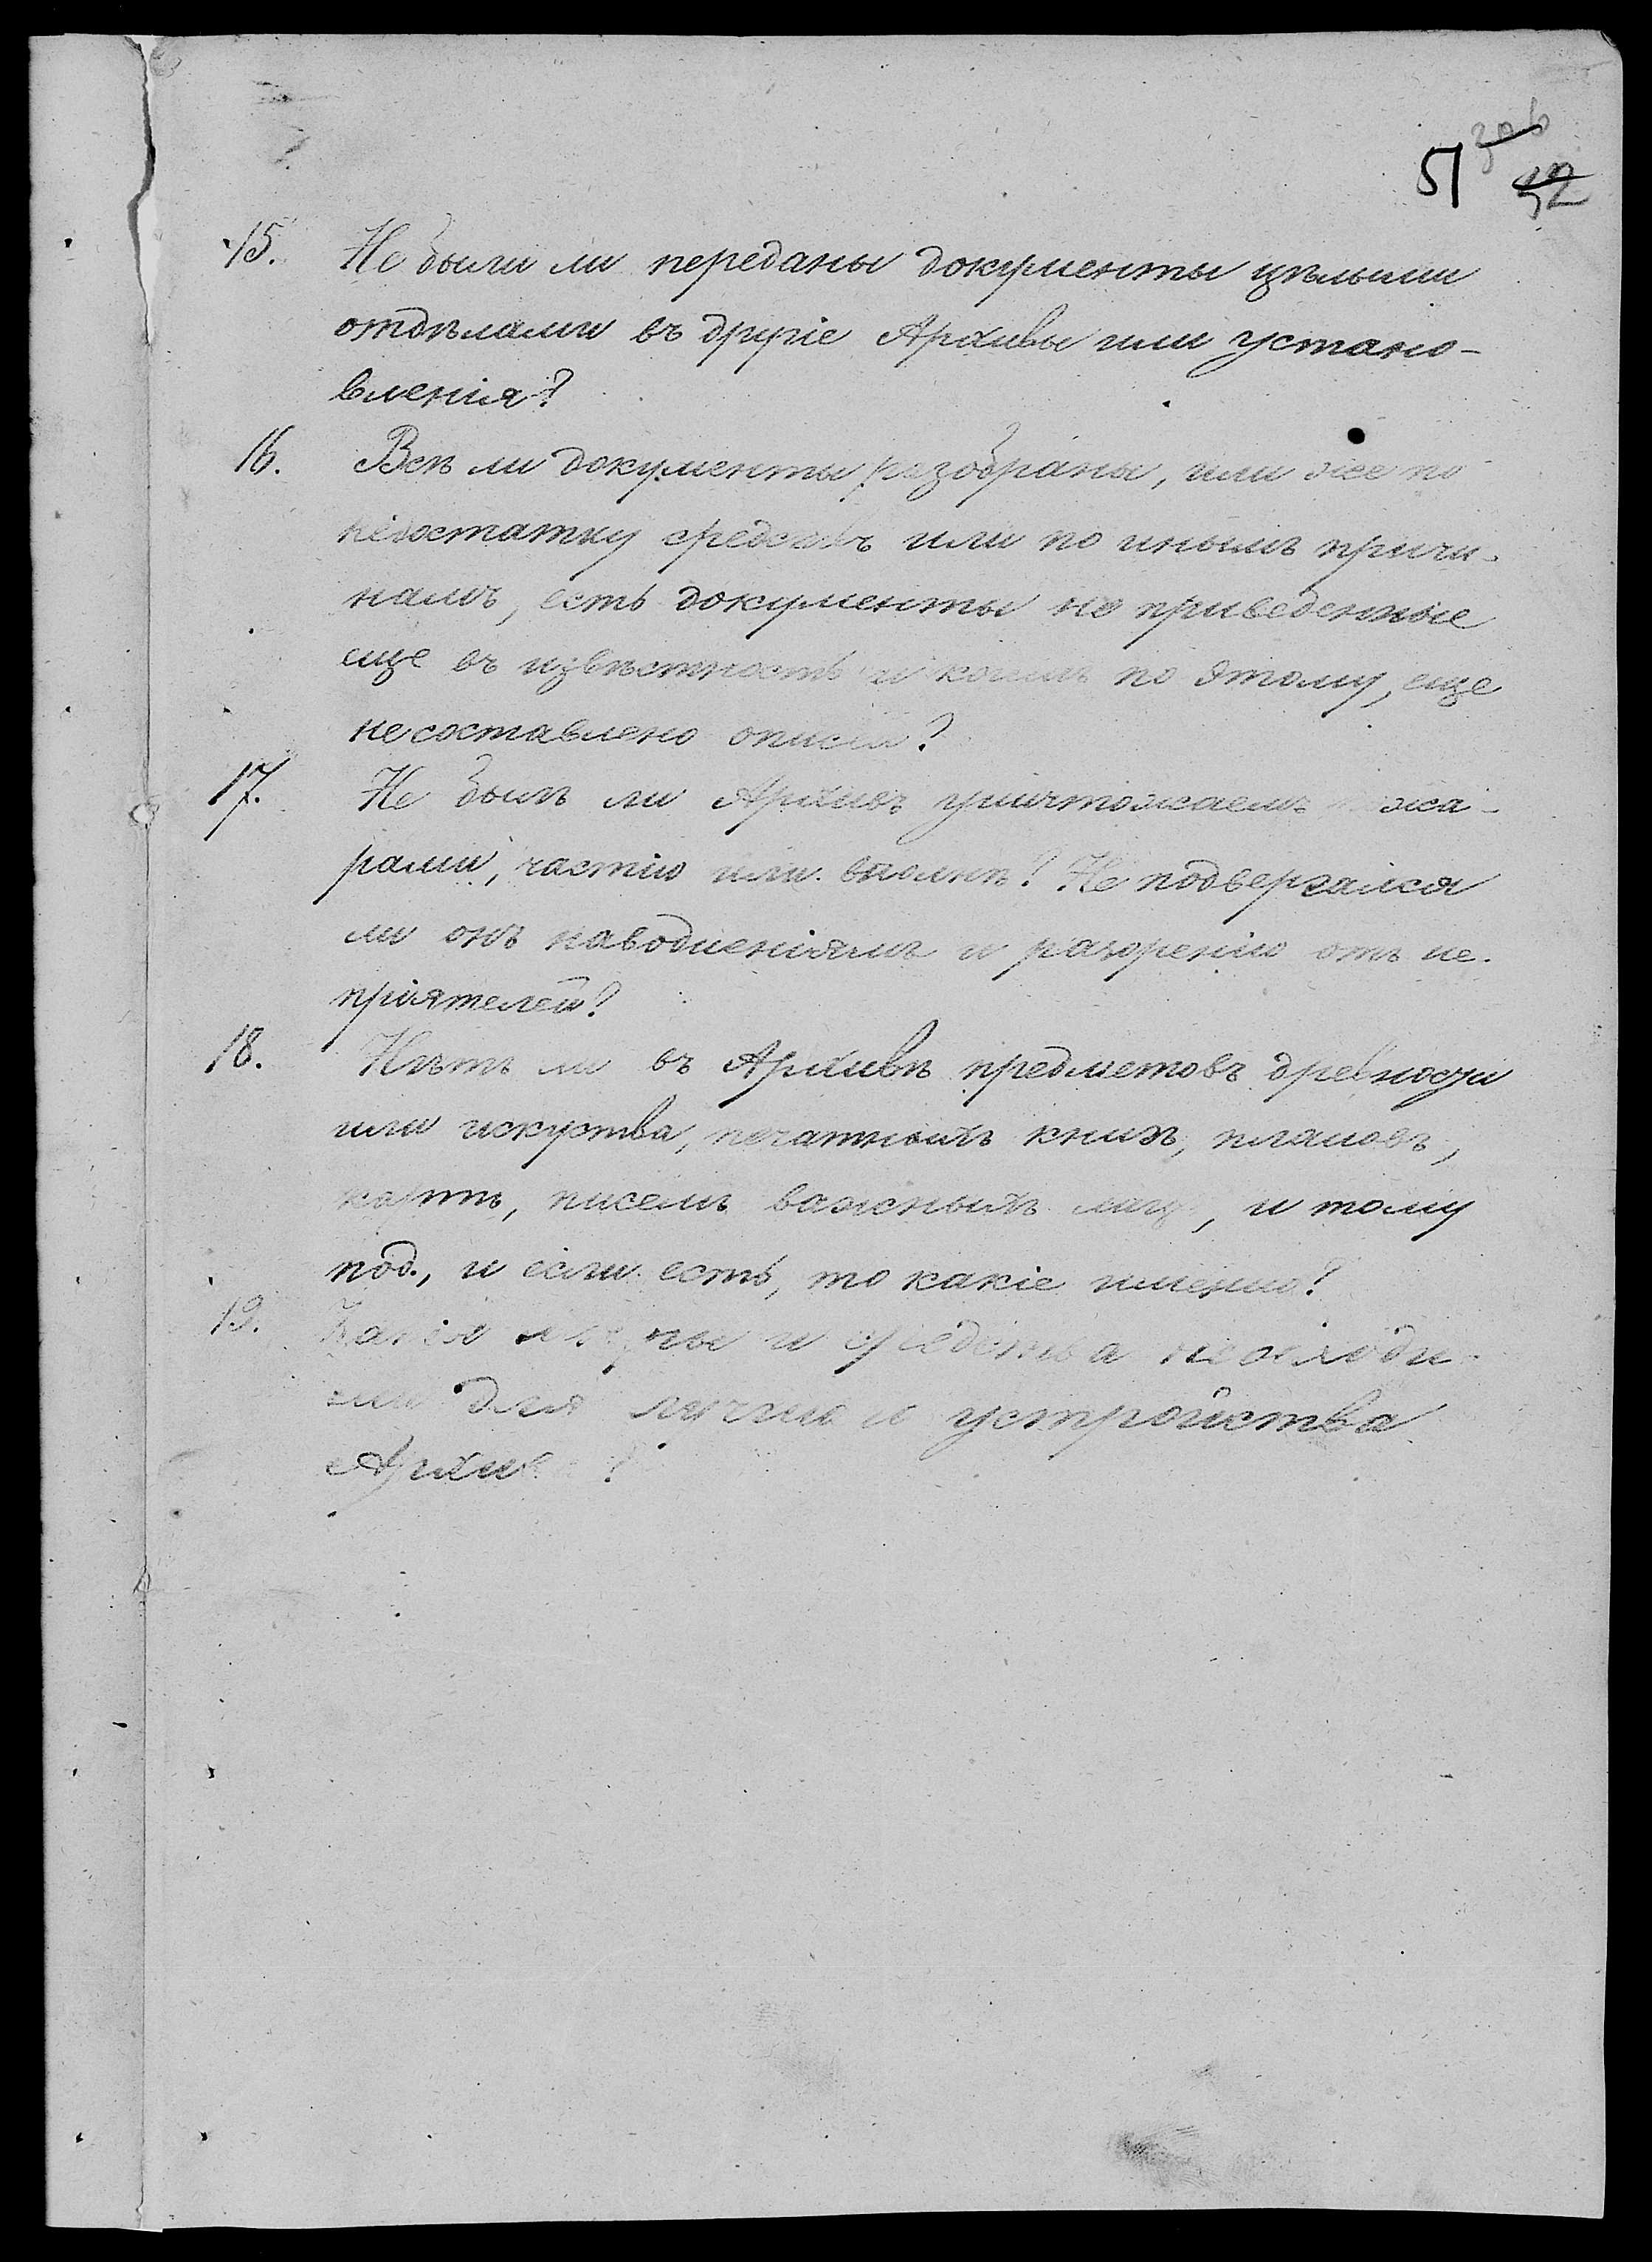 51
52
15. Не были ли переданы документы цѣлыми
отдѣлами въ другіе Архивы или устано-
вленія?
16. Всѣ ли документы разобраны, или же по
недостатку средствъ или по инымъ причи-
намъ, есть документы не приведенные
еще въ извѣстность и коимъ по этому, еще
не составлено описей?
17. Не былъ ли Архивъ уничтожаемъ пожа-
рами, частію или вполнѣ? Не подвергался
ли онъ наводненіямъ и разоренію отъ не-
пріятелей?
18. Нѣтъ ли въ Архивѣ предметовъ древности
или искуства, печатныхъ книгъ, плановъ,
картъ, писемъ важныхъ лицъ, и тому
под., и если есть, то какіе именно?
19. Какія мѣры и средства необходи-
мы для лучшаго устройства
Архива?